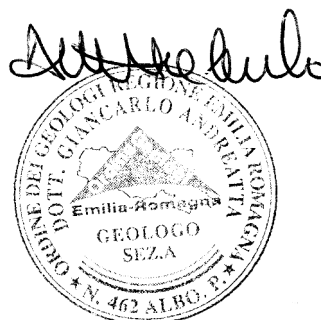 ORDINE DEI GEOLOGI REGIONE EMILIA ROMAGNA
DOTT. GIANCARLO ANDREATTA
Emilia-Romagna
GEOLOGO
SEZ.A
★ N. 462 ALBO. P. ★